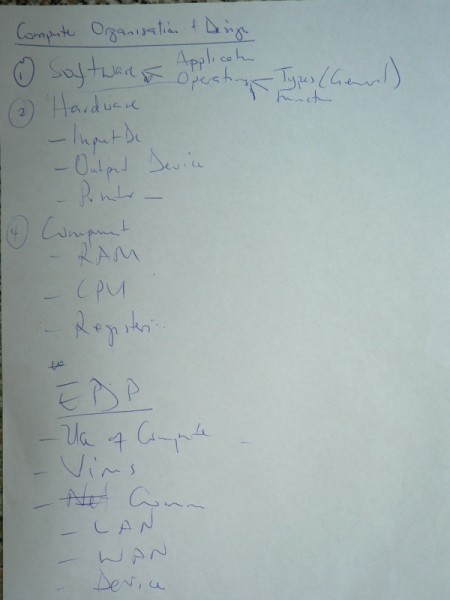 Compute Organisation & Design
① Software Application
Operating Types (General)
Function
② Hardware
- Input De
- Output Device
- Printer -
④ Component
- RAM
- CPU
- Registers
EDP
- Use of Compute -
- Virus
- Net Comm
- LAN
- WAN
- Device